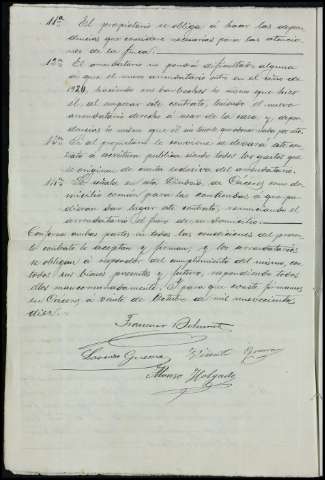 11ª El propietario se obliga á hacer las depen-
dencias que considere necesarias para las atencio-
nes de la finca.
12ª El arrendatario no pondrá dificultad alguna
á que el nuevo arrendatario entre en el mes de
1920, haciendo sus barbechos lo mismo que hizo
el al empezar este contrato, teniendo el nuevo
arrendatario derecho á usar de la casa y depen-
dencias lo mismo que él
13ª Si al propietario le conviniere se elevará este con-
trato á escritura pública siendo todos los gastos que
se originen de cuenta exclusiva del arrendatario.
14ª Se señala esta Ciudad de Cáceres como do-
micilio comun para las contiendas á que pu-
dieran dar lugar este contrato, renunciando el
arrendatario al fuero de su domicilio.
Conformes ambas partes en todas las condiciones del presen-
te contrato lo aceptan y firman, y los arrendatarios
se obligan á responder del cumplimiento del mismo con
todos sus bienes presentes y futuros, respondiendo todos
ellos mancomunadamente. Y para que conste firmamos
en Cáceres á veinte de Octubre de mil novecientos
diez.
Francisco
Lorenzo Guerra Vicente
Alonso Holgado